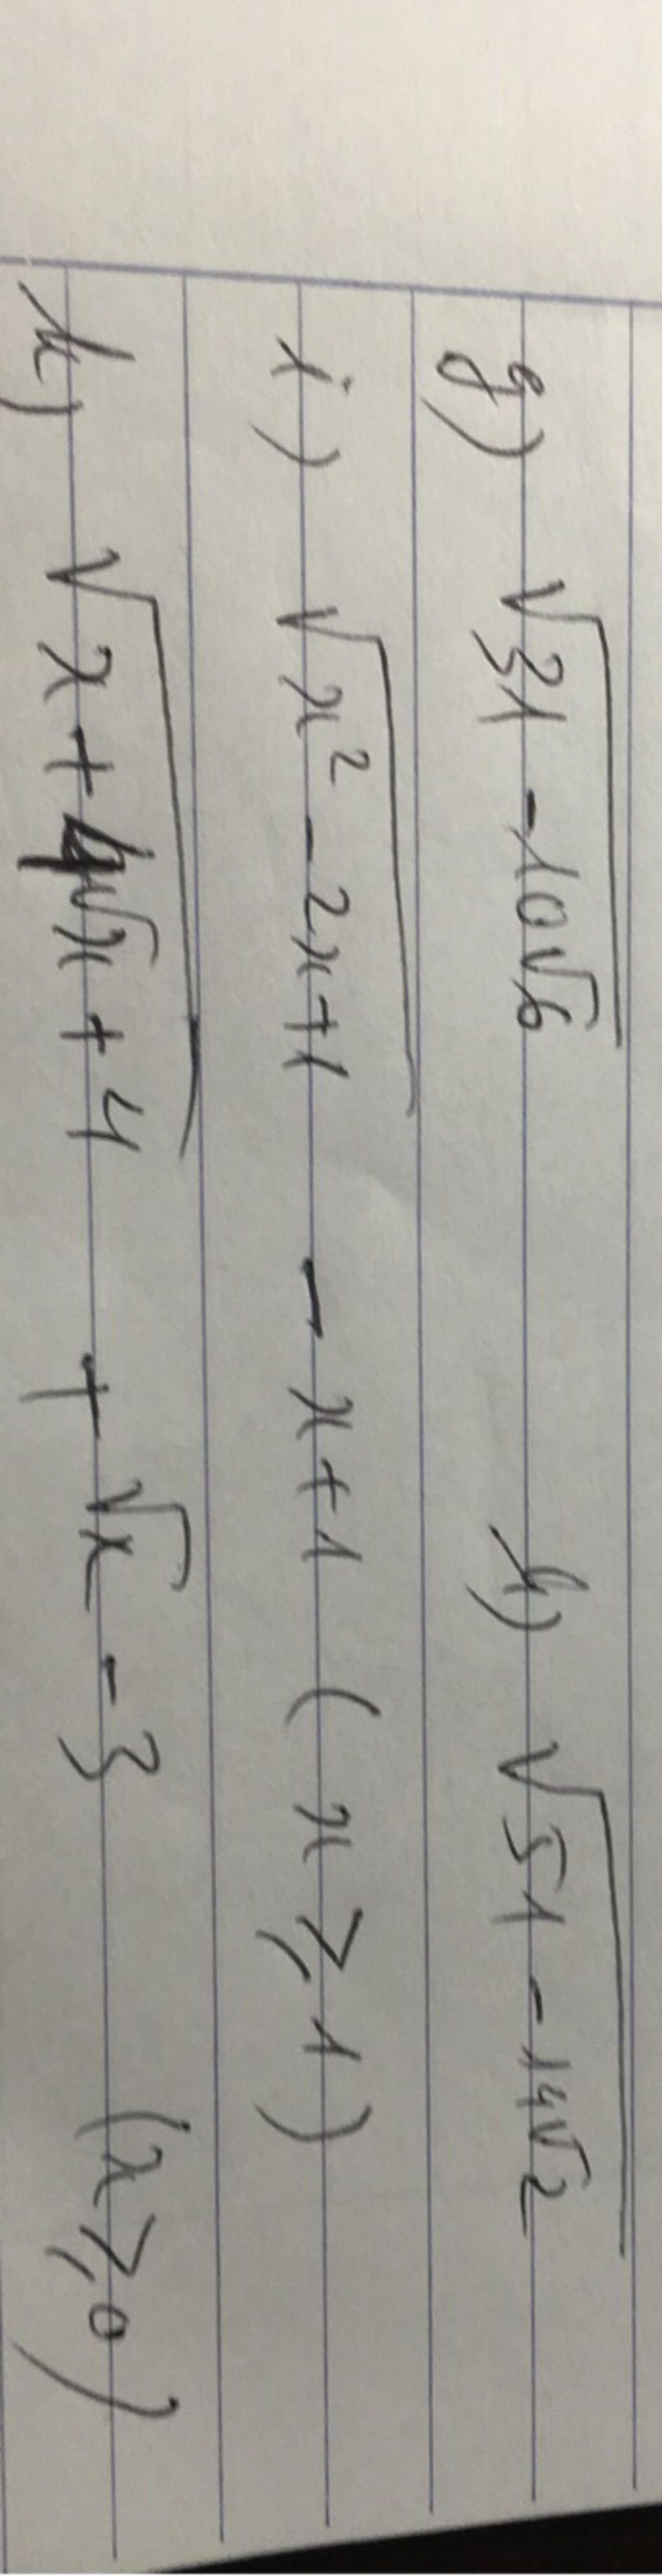 g) √(31 - 10√6) h) √(51 - 14√2)
i) √(x² - 2x + 1) - x + 1 (x ≥ 1)
k) √(x + 4√x + 4) + √x - 3 (x ≥ 0)